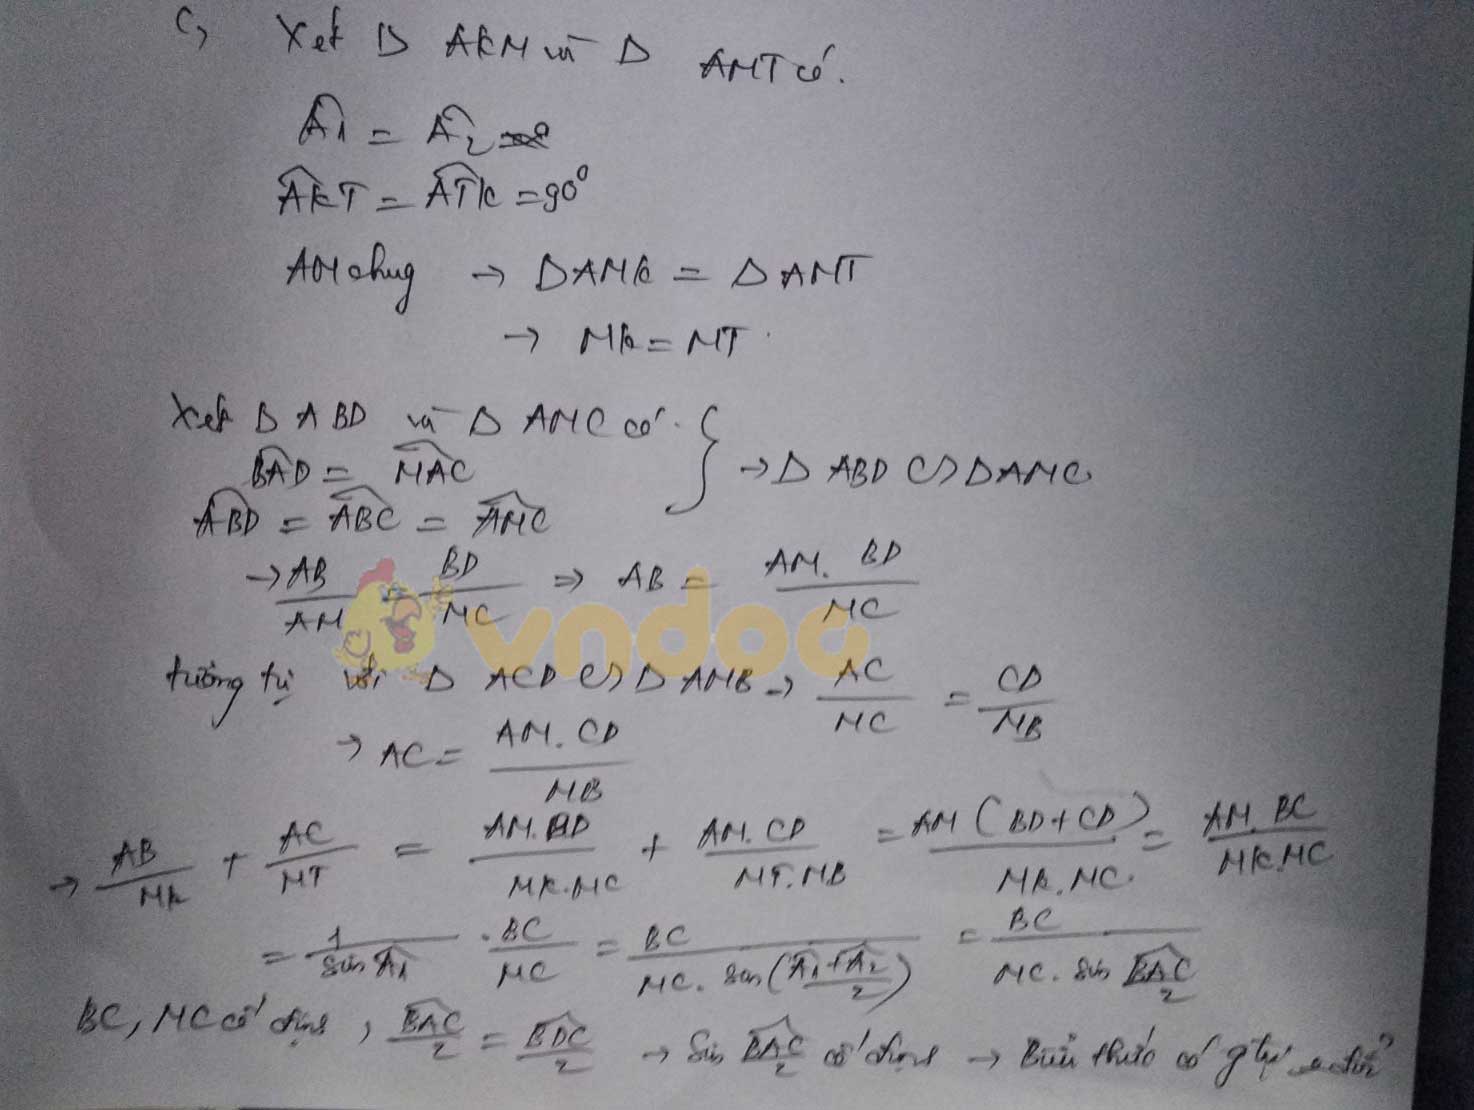 c, Xét Δ AKM và Δ AMT có.
Â1 = Â2
AKT = ATK = 90°
AM chug → ΔAMK = ΔAMT
→ MK = MT.
Xét Δ ABD và Δ AMC có.
BAD = MAC
ABD = ABC = AMC
} → Δ ABD ∽ ΔAMC
→ AB/AM = BD/MC ⇒ AB = AM. BD/MC
vndoc
tương tự với Δ ACD ∽ Δ AMB → AC/MC = CD/MB
→ AC = AM. CD/MB
→ AB/MK + AC/MT = AM. BD/MK.MC + AM. CD/MT.MB = AM (BD+CD)/MK.MC = AM. BC/MK.MC
= 1/sin Â1 . BC/MC = BC/MC. sin(Â1+Â2/2) = BC/MC. sin BAC/2
BC, MC cố định, BAC/2 = BDC/2 → Sin BAC/2 cố định → Biểu thức có gtrị